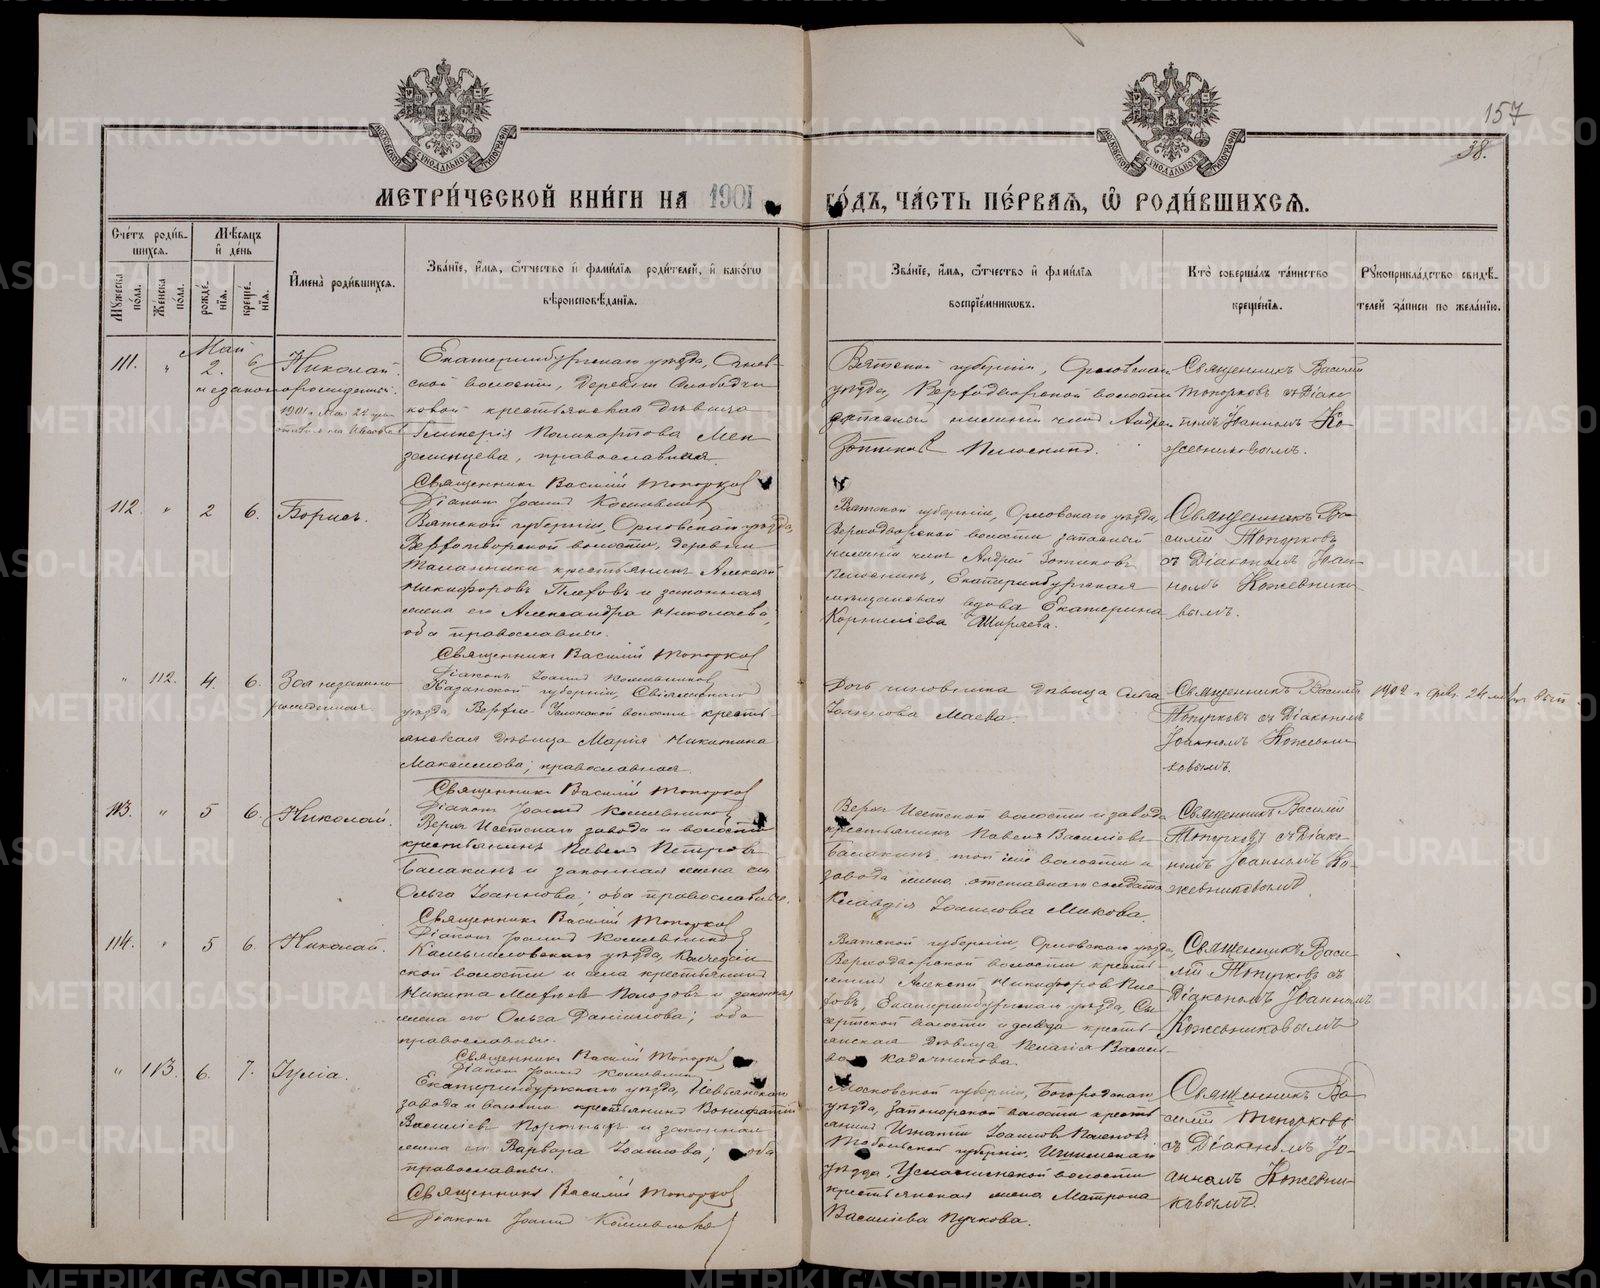 157
38.
МОСКОВСКОЙ СѴНОДАЛЬНОЙ ТИПОГРАФІИ
МОСКОВСКОЙ СѴНОДАЛЬНОЙ ТИПОГРАФІИ
МЕТРИ́ЧЕСКОЙ КНИ́ГИ НА 1901 ГО́ДЪ, ЧА́СТЬ ПЕ́РВАѦ, Ѽ РОДИ́ВШИХСѦ.
Сче́тъ роди́в-
шихся.
Мѣ́сяцъ
и́ де́нь
Му́жеска по́ла.
Же́нска по́ла.
рожде́-
нїя.
креще́-
нїя.
И҆мена̀ роди́вшихся.
Зва́нїе, и҆́мя, ѻ҆́тчество и҆ фами́лїя роди́телей, и҆ како́гѡ
вѣроисповѣ́данїя.
Зва́нїе, и҆́мя, ѻ҆́тчество и҆ фами́лїя
воспрїе́мниковъ.
Кто̀ соверша́лъ та́инство
креще́нїя.
Рꙋкоприкла́дство свидѣ́-
телей за́писи по жела́нїю.
Май
111. " 2. 6. Николай.
незаконнорожденный.
Екатеринбургскаго уѣзда,
ской волости, деревни Слободчи
ковой крестьянская дѣвица
Гликерія Поликарпова Мен
зелинцева, православная.
Священникъ Василій Топорковъ
Діаконъ Іоаннъ Кожевниковъ
Вятской губерніи, Орловскаго
уѣзда, Верходворской волости
запасный нижній чинъ Андрей
Зотиковъ
Священникъ Василій
Топорковъ съ Діако
номъ Іоанномъ Ко-
жевниковымъ.
112. " 2 6. Борисъ.
Вятской губерніи, Орловскаго уѣзда,
Верходворской волости, деревни
крестьянинъ Алексѣй
Никифоровъ Плеховъ и законная
жена его Александра Николаева,
оба православные.
Священникъ Василій Топорковъ
Діаконъ Іоаннъ Кожевниковъ
Вятской губерніи, Орловскаго уѣзда,
Верходворской волости запасный
нижній чинъ Андрей Зотиковъ
Екатеринбургская
мѣщанская вдова Екатерина
Корниліева Ширяева.
Священникъ Ва-
силій Топорковъ
съ Діакономъ Іоан-
номъ Кожевнико-
вымъ.
" 112. 4. 6. Зоя незаконно
рожденная
Казанской губерніи, Свіяжскаго
уѣзда, Верхне Услонской волости кресть-
янская дѣвица Марія Никитина
Максимова, православная.
Священникъ Василій Топорковъ
Діаконъ Іоаннъ Кожевниковъ
Дочь чиновника дѣвица
Іоаннова Маева.
Священникъ Василій
Топорковъ съ Діакономъ
Іоанномъ Кожевни-
ковымъ.
1902 г. фев. 24
113. " 5 6. Николай.
Верхъ Исетскаго завода и волости
крестьянинъ Павелъ Петровъ
Балакинъ и законная жена его
Ольга Іоаннова; оба православные.
Священникъ Василій Топорковъ
Діаконъ Іоаннъ Кожевниковъ
Верхъ Исетской волости и завода
крестьянинъ Павелъ Василіевъ
Балакинъ, той же волости и
завода жена отставнаго солдата
Клавдія Іоаннова Микова.
Священникъ Василій
Топорковъ съ Діако-
номъ Іоанномъ Ко-
жевниковымъ
114. " 5 6. Николай.
Камышловскаго уѣзда, Колчедан
ской волости и села крестьянинъ
Никита и законная
жена его Ольга Даніилова; оба
православные.
Священникъ Василій Топорковъ
Діаконъ Іоаннъ Кожевниковъ
Вятской губерніи, Орловскаго уѣзда,
Верходворской волости кресть-
янинъ Алексѣй Никифоровъ Пле
ховъ, Екатеринбургскаго уѣзда, Сы
сертской волости и завода кресть-
янская дѣвица Пелагія Василі-
ева Кадочникова.
Священникъ Васи-
лій Топорковъ съ
Діакономъ Іоанномъ
Кожевниковымъ
" 113. 6. 7. Іулія.
Екатеринбургскаго уѣзда, Невьянскаго
завода и волости крестьянинъ Вонифатій
Василіевъ и законная
жена его Варвара Іоаннова; оба
православные.
Священникъ Василій Топорковъ
Діаконъ Іоаннъ Кожевниковъ
Московской губерніи, Богородскаго
уѣзда, Запонорской волости кресть
янинъ Игнатій Іоанновъ
Тобольской губерніи, Ишимскаго
уѣзда, Усламинской волости
крестьянская жена Матрона
Василіева Пучкова.
Священникъ Ва-
силій Топорковъ
съ Діакономъ Іо-
анномъ Кожевни-
ковымъ.
METRIKI.GASO-URAL.RU